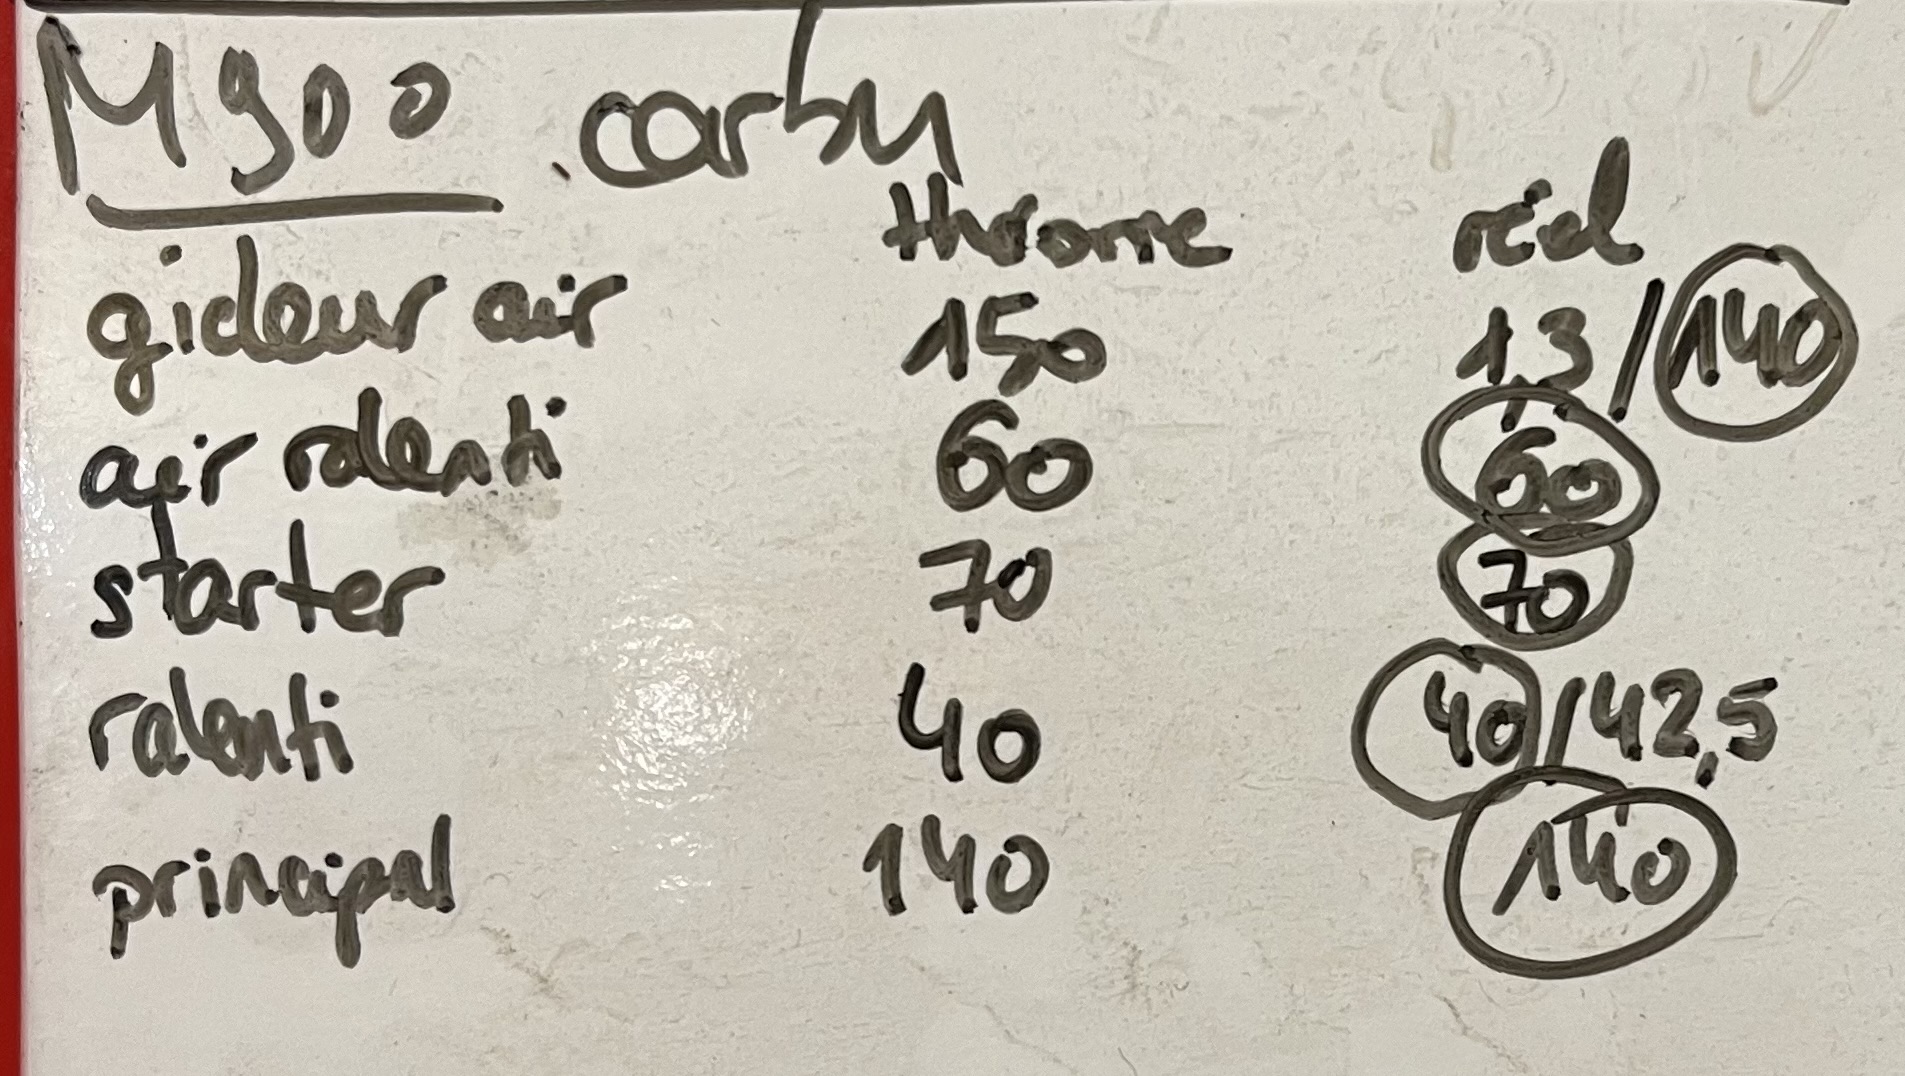 M900 carby
théorie réel
gicleur air 150 1,3/140
air ralenti 60 60
starter 70 70
ralenti 40 40/42,5
principal 140 140